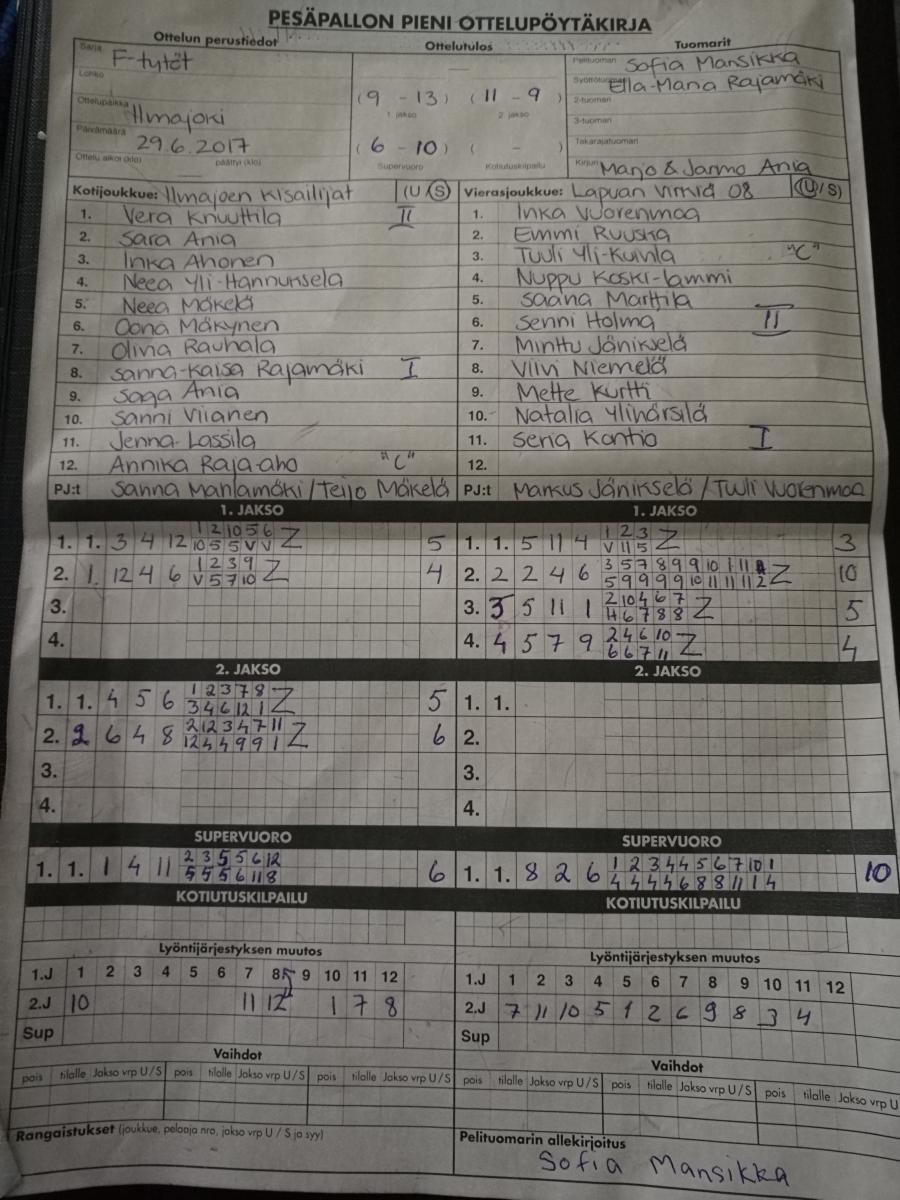 PESÄPALLON PIENI OTTELUPÖYTÄKIRJA
Ottelun perustiedot Ottelutulos Tuomarit
Sarja F-tytöt
Pelituomari Sofia Mansikka
Lohko
Syöttötuomari Ella-Maria Rajamäki
Ottelupaikka Ilmajoki
(9 - 13) (11 - 9)
1 jakso 2 jakso
2-tuomari
3-tuomari
Päivämäärä 29.6.2017
(6 - 10) ( - )
Takarajatuomari
Ottelu alkoi (klo) päättyi (klo)
Supervuoro Kotiutuskilpailu
Kirjuri Marjo & Jarmo Ania
Kotijoukkue: Ilmajoen Kisailijat (U/S) Vierasjoukkue: Lapuan Virkiä 08 (U/S)
1. Vera Knuuttila II 1. Inka Vuorenmaa
2. Sara Ania 2. Emmi Ruuska
3. Inka Ahonen 3. Tuuli Yli-Kuivila "C"
4. Neea Yli-Hannuksela 4. Nuppu Koski-lammi
5. Neea Mäkelä 5. Saana Marttila
6. Oona Mäkynen 6. Senni Holma II
7. Olivia Rauhala 7. Minttu Jänikselä
8. Sanna-Kaisa Rajamäki I 8. Viivi Niemelä
9. Saga Ania 9. Mette Kurtti
10. Sanni Viianen 10. Natalia Ylihärsilä
11. Jenna Lassila 11. Seria Kontio I
12. Annika Raja-aho "C" 12.
PJ:t Sanna Manlamäki / Teijo Mäkelä PJ:t Markus Jänikselä / Tuuli Vuorenmaa
1. JAKSO 1. JAKSO
1. 1. 3 4 12 1 2 10 5 6 Z 5 1. 1. 5 11 4 1 2 3 Z 3
10 5 5 V V V 11 5
2. 1. 12 4 6 1 2 3 9 Z 4 2. 2 2 4 6 3 5 7 8 9 9 10 1 11 Z 10
V 5 7 10 5 9 9 9 9 10 11 11 11 2
3. 3. 3 5 11 1 2 10 4 6 7 Z 5
4 6 7 8 8
4. 4. 4 5 7 9 2 4 6 10 Z 4
6 6 7 11
2. JAKSO 2. JAKSO
1. 1. 4 5 6 1 2 3 7 8 Z 5 1. 1.
3 4 6 12 1
2. 2 6 4 8 2 12 3 4 7 11 Z 6 2.
12 4 4 9 9 1
3. 3.
4. 4.
SUPERVUORO SUPERVUORO
1. 1. 1 4 11 2 3 5 5 6 12 6 1. 1. 8 2 6 1 2 3 4 4 5 6 7 10 1 10
5 5 5 6 11 8 4 4 4 4 6 8 8 11 1 4
KOTIUTUSKILPAILU KOTIUTUSKILPAILU
Lyöntijärjestyksen muutos Lyöntijärjestyksen muutos
1.J 1 2 3 4 5 6 7 8 9 10 11 12 1.J 1 2 3 4 5 6 7 8 9 10 11 12
2.J 10 11 12 1 7 8 2.J 7 11 10 5 1 2 6 9 8 3 4
Sup Sup
Vaihdot Vaihdot
pois tilalle Jakso vrp U/S pois tilalle Jakso vrp U/S pois tilalle Jakso vrp U/S pois tilalle Jakso vrp U/S pois tilalle Jakso vrp U/S pois tilalle Jakso vrp U
Rangaistukset (joukkue, pelaaja nro, jakso vrp U / S ja syy) Pelituomarin allekirjoitus
Sofia Mansikka